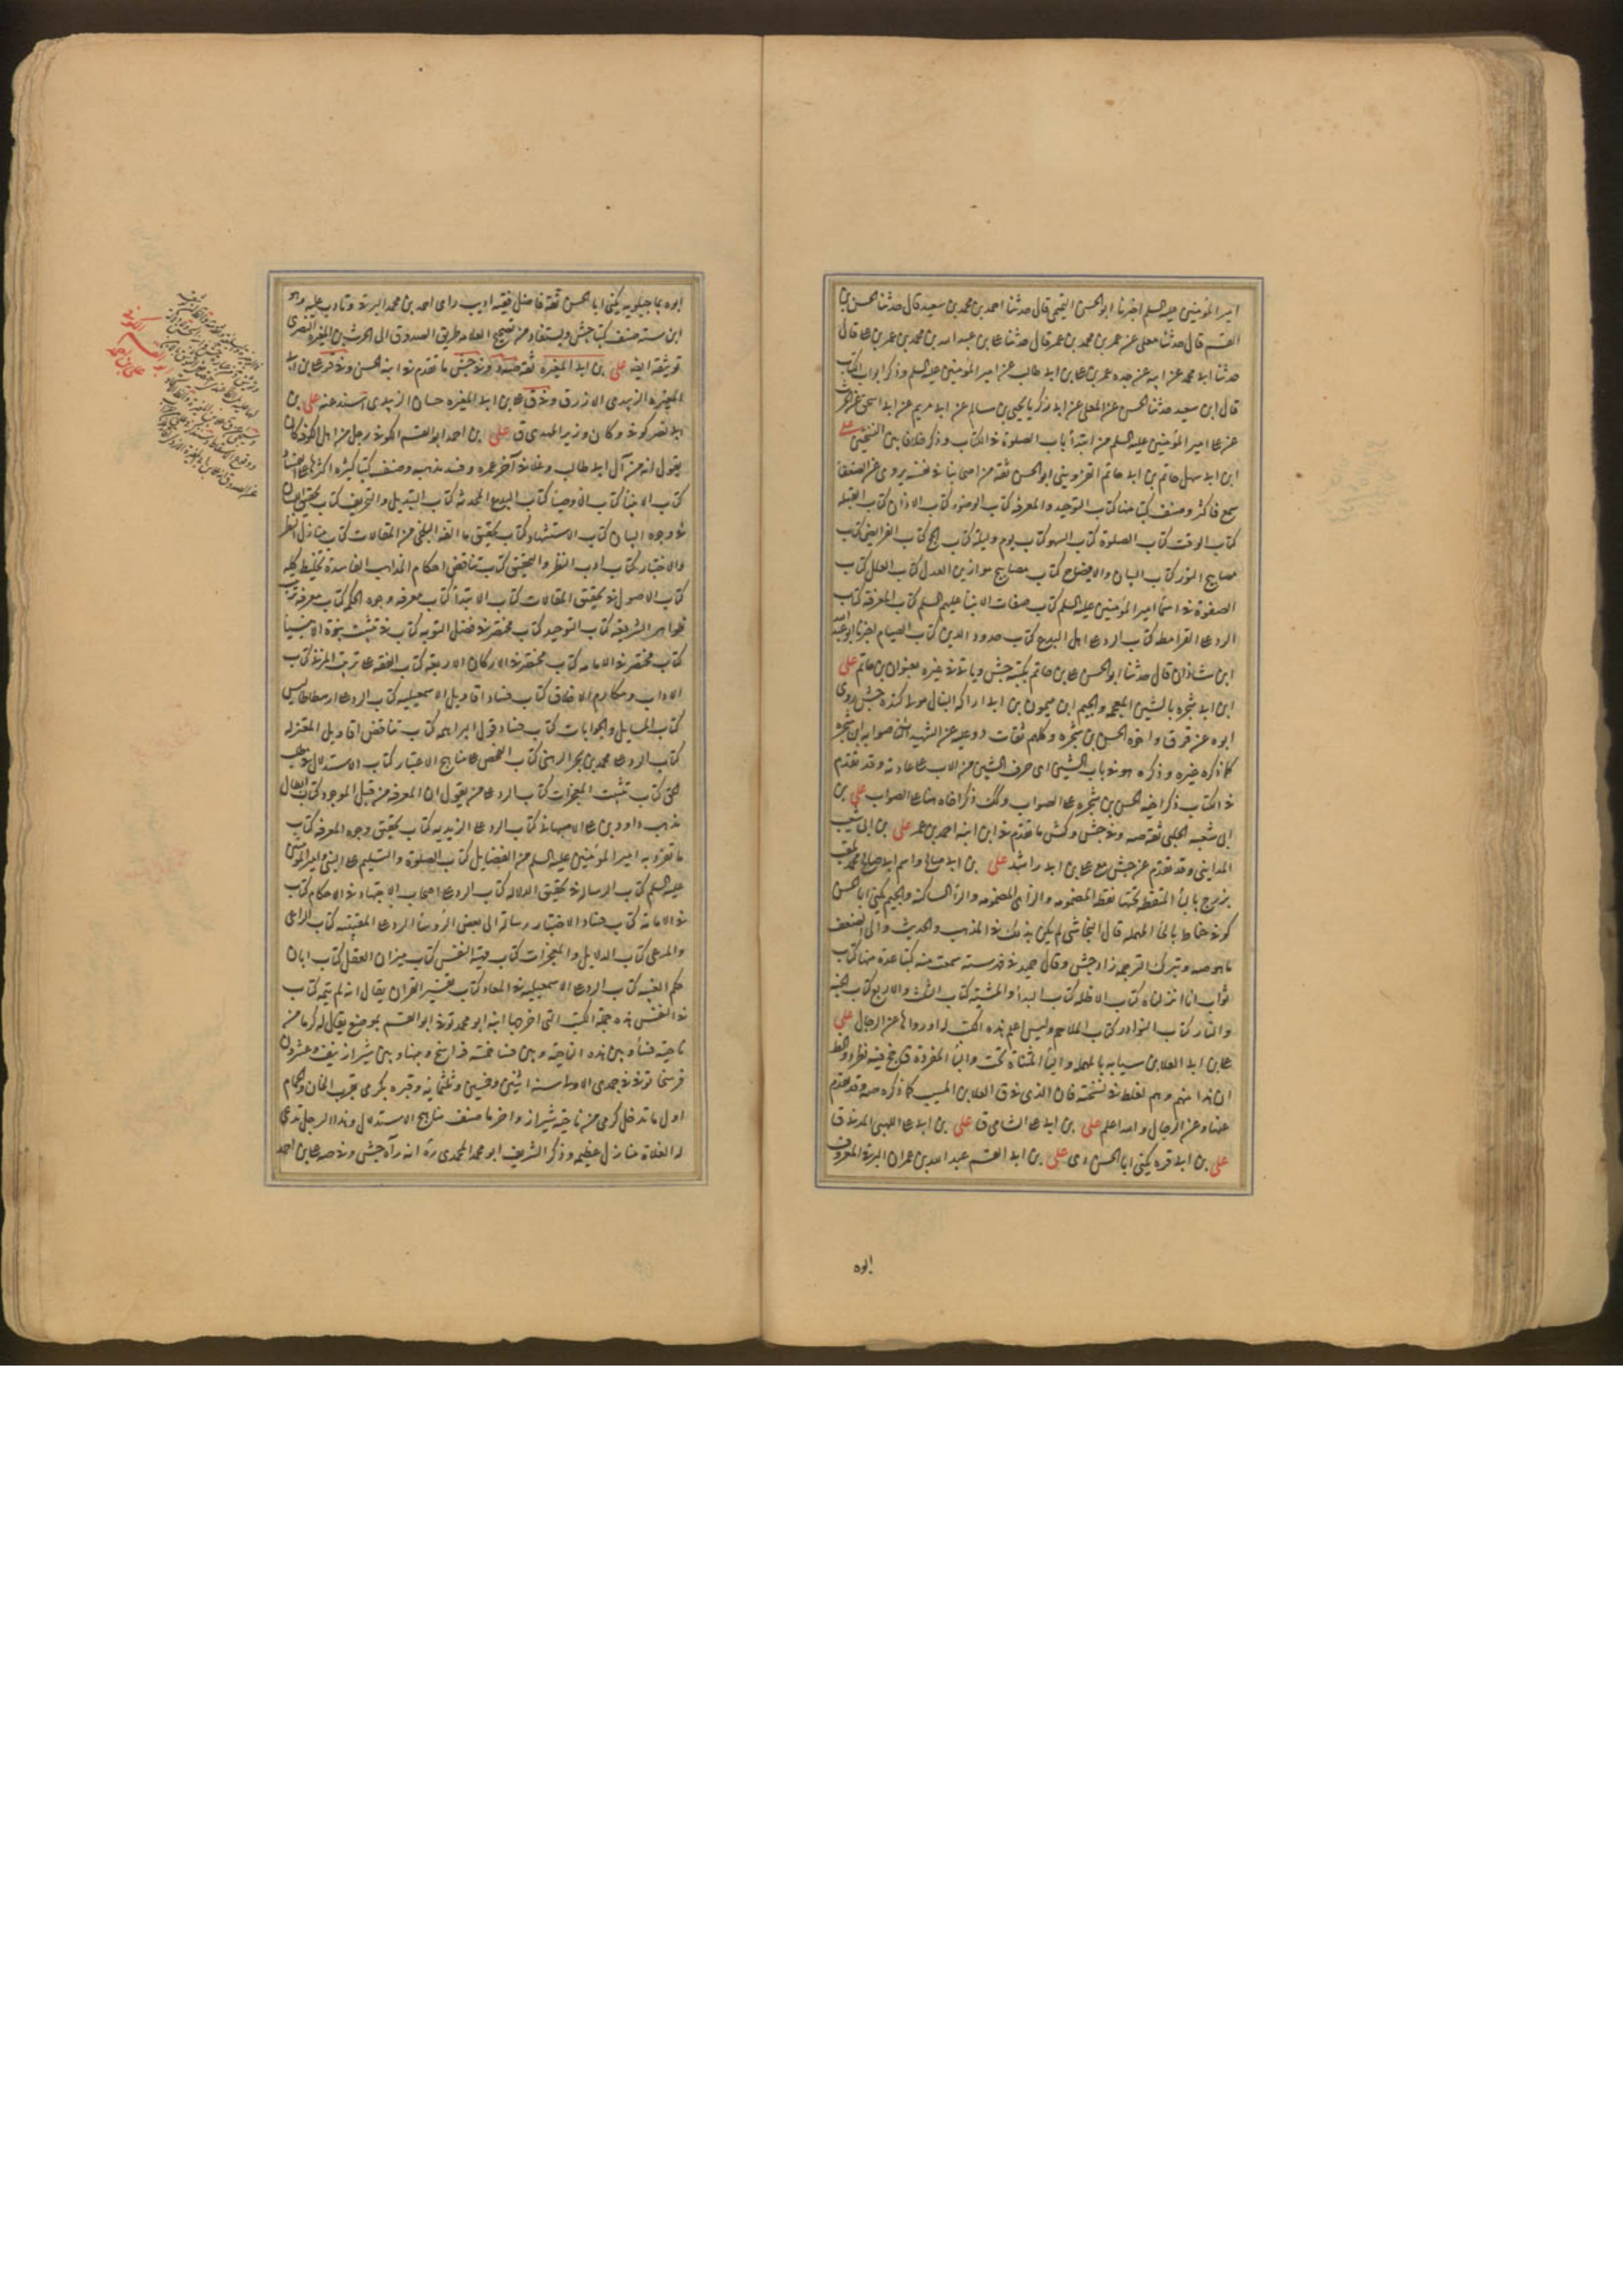 امير المؤمنين عليه السلم اخبرنا ابو الحسن التميمى قال حدثنا احمد بن محمد بن سعيد قال حدثنا الحسن بن
القسم قال حدثنا معلى عن عمر بن محمد بن عمر قال حدثنا على بن عبد الله بن محمد بن عمر بن على قال
حدثنا ابى محمد عن ابيه عن جده عمر بن على بن ابى طالب عن امير المؤمنين عليه السلم وذكر ابواب الكتاب
قال ابن سعيد حدثنا الحسن عن المعلى عن ابى زكريا يحيى بن سالم عن ابى مريم عن ابى اسحق عن الحرث
عن على امير المؤمنين عليه السلم من ابتدأ باب الصلوة فى الكتاب وذكر خلافا بين النسختين على
ابن ابى سهل حاتم بن ابى حاتم القزوينى ابو الحسن ثقة من اصحابنا فى نفسه يروى عن الضعفا
سمع فاكثر وصنف كتبا منها كتاب التوحيد والمعرفة كتاب الوضوء كتاب الاذان كتاب القبلة
كتاب الوقت كتاب الصلوة كتاب السهو كتاب يوم وليلة كتاب الحج كتاب الفرايض كتاب
مصابيح النور كتاب البيان والايضاح كتاب مصابيح موازين العدل كتاب العلل كتاب
الصفوة فى اسمأ امير المؤمنين عليه السلم كتاب صفات الانبيأ عليهم السلم كتاب المعرفة كتاب
الرد على القرامطة كتاب الرد على اهل البدع كتاب حدود الدين كتاب الصيام اخبرنا ابو عبد الله
ابن شاذان قال حدثنا ابو الحسن على بن حاتم بكتبه جش وياتى فى غيره بعنوان بن حاتم على
ابن ابى شجره بالشين المعجمه والجيم ابن ميمون بن ابى اراكه النبال مولى كنده جش روى
ابوه عن ق ر ق واخوه الحسن بن شجره وكلهم ثقات
كما ذكره غيره وذكره هو فى باب الشين اى حرف الشين من الاب على عادته وقد تقدم
فى الكتاب ذكر اخيه الحسن بن شجره على الصواب وكذلك ذكر اخاه هنا على الصواب على بن
ابى شعبه الحلبى ثقة صه وفى جش وكش ما تقدم فى ابن ابنه احمد بن عمر على بن ابى شعيب
المداينى وقد تقدم عن جش مع على بن ابى راشد على بن ابى صالح واسم ابى صالح محمد يلقب
بزرج بالبأ المنقطة تحتها نقطه المضمومه والزاى المضمومه والرأ الساكنه والجيم يكنى ابا الحسن
كوفى حناط بالحأ المهمله قال النجاشى لم يكن بذلك فى المذهب والحديث والى الضعف
ما هو صه وبترك الترجمه زاد جش وقال حميد فى فهرسته سمعت منه كتبا عدة منها كتاب
ثواب انا انزلناه كتاب الاظله كتاب البدأ والمشية كتاب الثلث والاربع كتاب الجنه
والنار كتاب النوادر كتاب الملاحم وليس اعلم هذه الكتب له او رواها عن الرجال على
على بن ابى العلا بن سيابه بالمهمله واليأ المثناة تحت والبأ المفردة
ان هذا منهم وهم لغلط فى نسخته فان الذى فى ق العلا بن المسيب كما ذكره صه وقد تقدم
هنا وعن الرجال والله اعلم على بن ابى على الشامى ق على بن ابى على اللهبى المدنى ق
على بن ابى قره يكنى ابا الحسن دى على بن ابى القسم عبد الله بن عمران البرقى المعروف
ابوه
ابوه بماجيلويه يكنى ابا الحسن ثقة فاضل فقيه اديب راى احمد بن محمد البرقى وتادب عليه وهو
ابن بنته صنف كتبا جش ويستفاد من تصحيح العلامه طريق الصدوق الى الحرث بن المغيرة النصرى
توثيقه ايضا على بن ابى المغيرة ثقة وفى جش ما تقدم فى ابنه الحسن وفى قر على بن ابى
المغيره الزبيدى الازرق وفى ق على بن ابى المغيره حسان الزبيدى اسند عنه على بن
ابى نصر كوفى وكان وزير المهدى ق على بن احمد ابو القسم الكوفى رجل من اهل الكوفة كان
يقول انه من آل ابى طالب وغلا فى آخر عمره وفسد مذهبه وصنف كتبا كثيره اكثرها على الفساد
كتاب الانبيأ كتاب الاوصيأ كتاب البدع المحدثه كتاب التبديل والتحريف كتاب تحقيق اللسان
فى وجوه البيان كتاب الاستشهاد كتاب تحقيق ما الفه البلخى من المقالات كتاب منازل النظر
والاختيار كتاب ادب النظر والتحقيق كتاب تناقض احكام المذاهب الفاسدة تخليط كله
كتاب الاصول فى تحقيق المقالات كتاب الابتدأ كتاب معرفه وجوه الحكمه كتاب معرفه ترتيب
ظواهر الشريعه كتاب التوحيد كتاب مختصر فى فضل التوبه كتاب فى تثبيت نبوة الانبيأ
كتاب مختصر فى الامامه كتاب مختصر فى الاركان الاربعه كتاب الفقه على ترتيب المزنى كتاب
الاداب ومكارم الاخلاق كتاب فساد اقاويل الاسمعيليه كتاب الرد على ارسطاطاليس
كتاب المسايل والجوابات كتاب فساد قول البراهمه كتاب تناقض اقاويل المعتزله
كتاب الرد على محمد بن بحر الرهنى كتاب الفحص على مناهج الاعتبار كتاب الاستدلال فى طلب
الحق كتاب تثبيت المعجزات كتاب الرد على من يقول ان المعرفه من قبل الموجود كتاب ابطال
مذهب داود بن على الاصبهانى كتاب الرد على الزيديه كتاب تحقيق وجوه المعرفه كتاب
ما تفرد به امير المؤمنين عليه السلم من الفضايل كتاب الصلوة والتسليم على النبى وامير المؤمنين
عليه السلم كتاب الرساله فى تحقيق الدلاله كتاب الرد على اصحاب الاجتهاد فى الاحكام كتاب
فى الامامه كتاب فساد الاختيار رساله الى بعض الرؤسأ الرد على المثبته كتاب الراعى
والمرعى كتاب الدلايل والمعجزات كتاب ميتة النفس كتاب ميزان العقل كتاب ابان
حكم الغيبه كتاب الرد على الاسمعيليه فى المعاد كتاب تفسير القران يقال انه لم يتمه كتاب
فى النفس هذه جملة الكتب التى اخرجها ابنه ابو محمد توفى ابو القسم بموضع يقال له كرمى من
ناحية فسأ وبين هذه الناحية وبين فسا خمسة فراسخ وبينها وبين شيراز نيف وعشرون
فرسخا توفى فى جمدى الاولى سنه اثنين وخمسين وثلثمايه وقبره بكرمى بقرب الخان والحمام
اول ما تدخل كرمى من ناحية شيراز واخر ما صنف مناهج الاستدلال وهذا الرجل تدعى
له الغلاة منازل عظيمه وذكر الشريف ابو محمد المحمدى ره انه رآه جش وفى صه على بن احمد